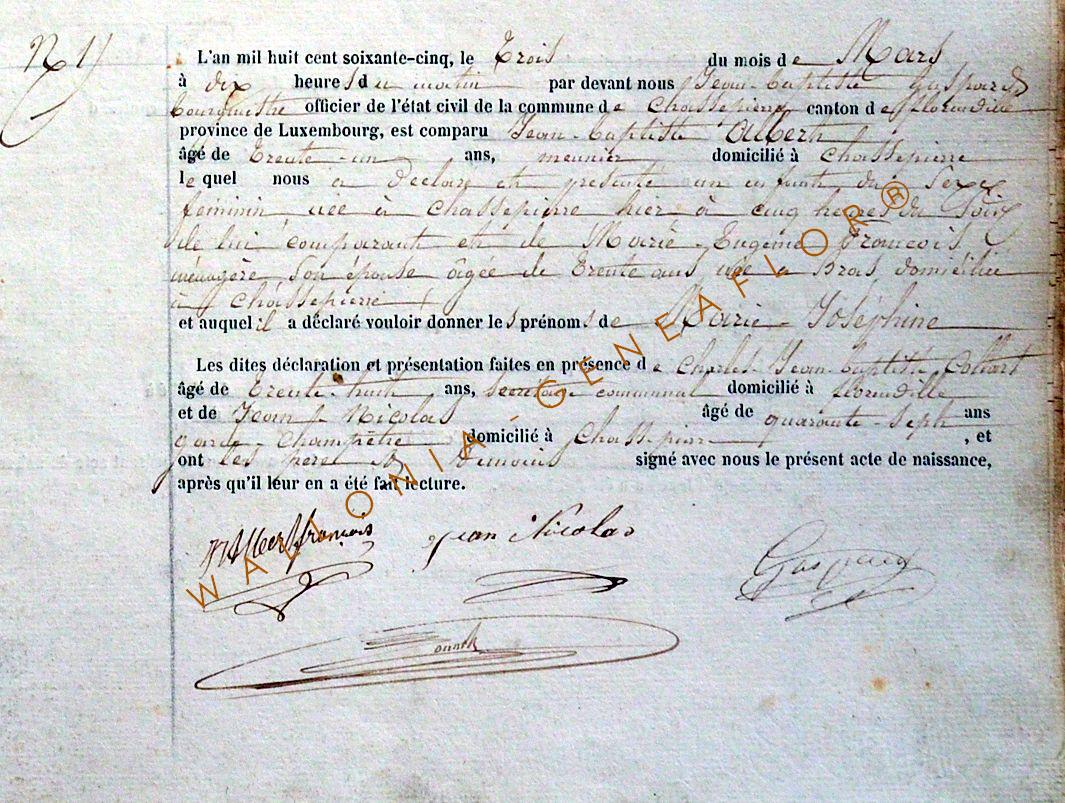 N
L'an mil huit cent soixante-cinq, le Trois du mois de Mars
à dix heures du matin par devant nous Jean-baptiste Gaspard
bourgmestre officier de l'état civil de la commune de Chassepierre canton de florenville
province de Luxembourg, est comparu Jean-baptiste Albert
âgé de Trente-un ans, meunier domicilié à Chassepierre
lequel nous a déclaré et présenté un enfant du Sexe
féminin, née à Chassepierre hier à cinq heures du Soir
de lui comparant et de Marie-Eugénie François
ménagère son épouse âgée de Trente ans, née a Bras domiciliée
à Chassepierre
et auquel il a déclaré vouloir donner les prénoms de Marie-Joséphine
Les dites déclaration et présentation faites en présence de Charles-Jean-baptiste
âgé de Trente-huit ans, Secrétaire communal domicilié à florenville
et de Jean Nicolas âgé de quarante-sept ans
garde-champêtre domicilié à Chassepierre , et
ont les père et témoins signé avec nous le présent acte de naissance,
après qu'il leur en a été fait lecture.
Albert françois Jean Nicolas Gaspard
WALLONIA-GENEAFLOR®